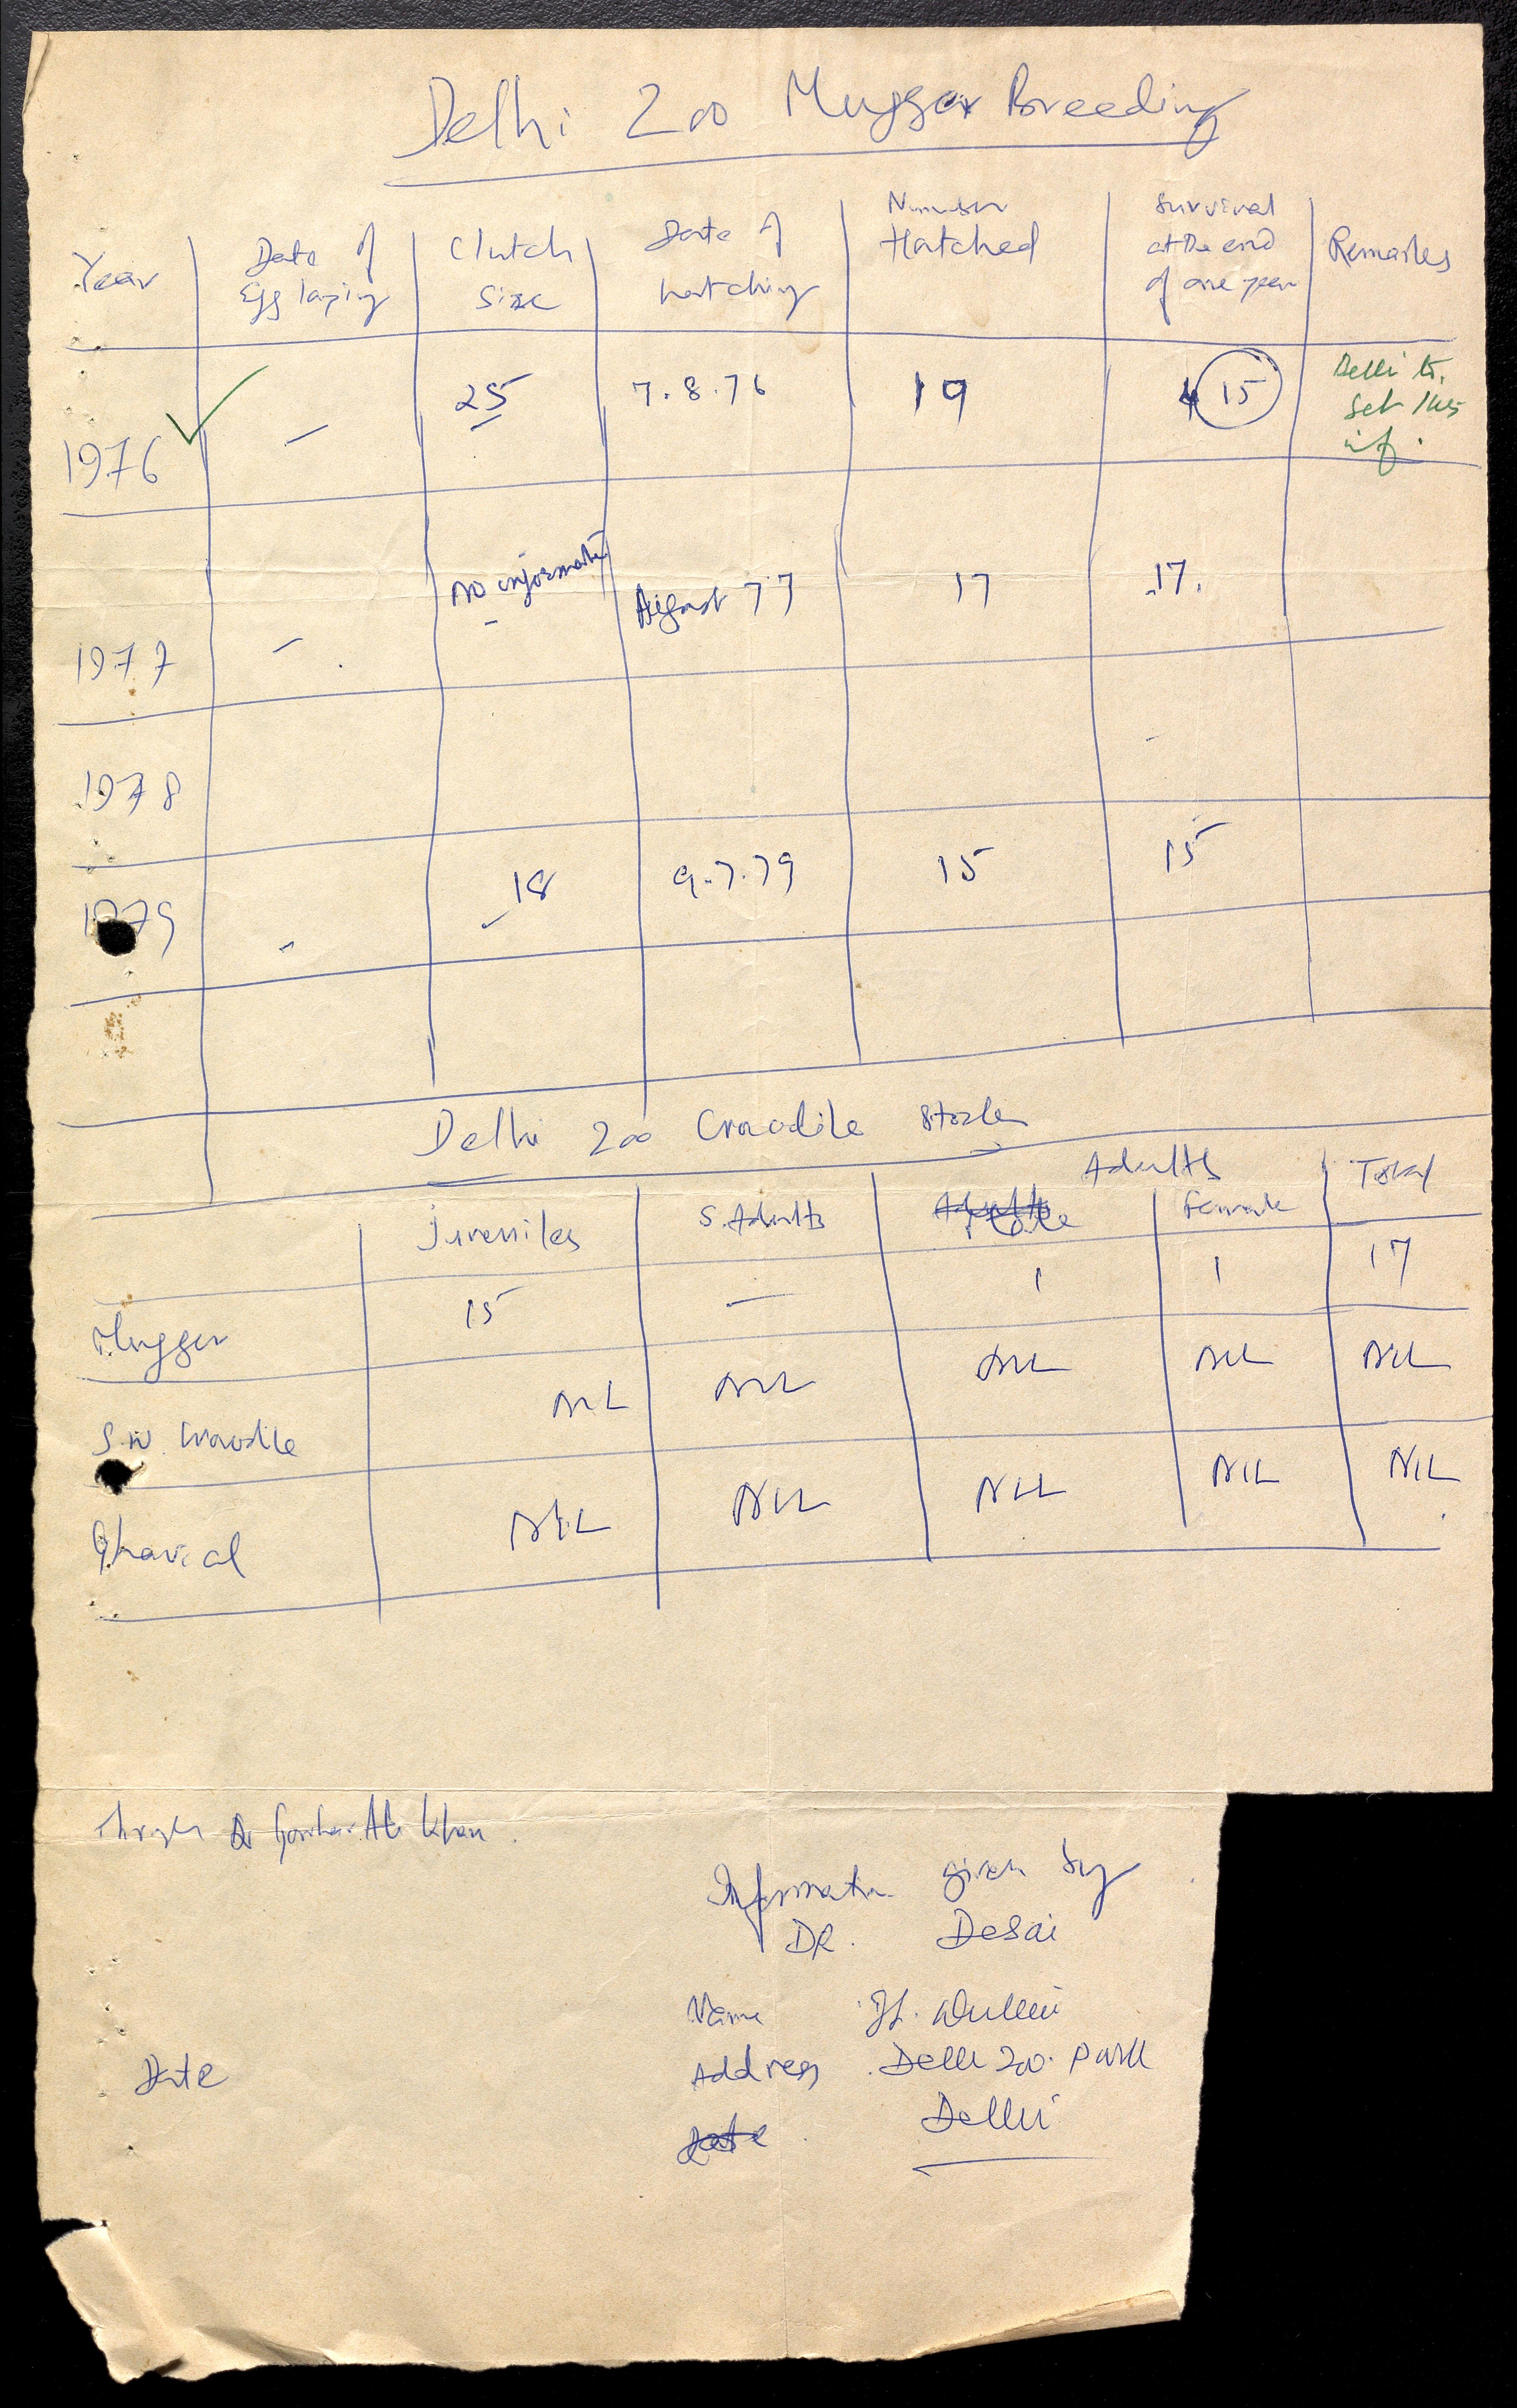 Delhi Zoo Mugger Breeding
Year | Date of Egg laying | Clutch Size | Date of hatching | Number Hatched | Survival at the end of one year | Remarks
1976 | – | 25 | 7.8.76 | 19 | 15 | Delhi to. get this inf.
1977 | – | no information – | August 77 | 17 | 17.
1978 | –
1979 | – | 18 | 9.7.79 | 15 | 15
Delhi Zoo Crocodile Stocks
Adults
Juveniles | S. Adults | Male | Female | Total
Mugger | 15 | – | 1 | 1 | 17
S.W. Crocodile | NIL | NIL | NIL | NIL | NIL
Gharial | NIL | NIL | NIL | NIL | NIL
Through Ali Khan.
Information given by
DR. Desai
Name
Address Delhi Zoo. Park
Date
Delhi